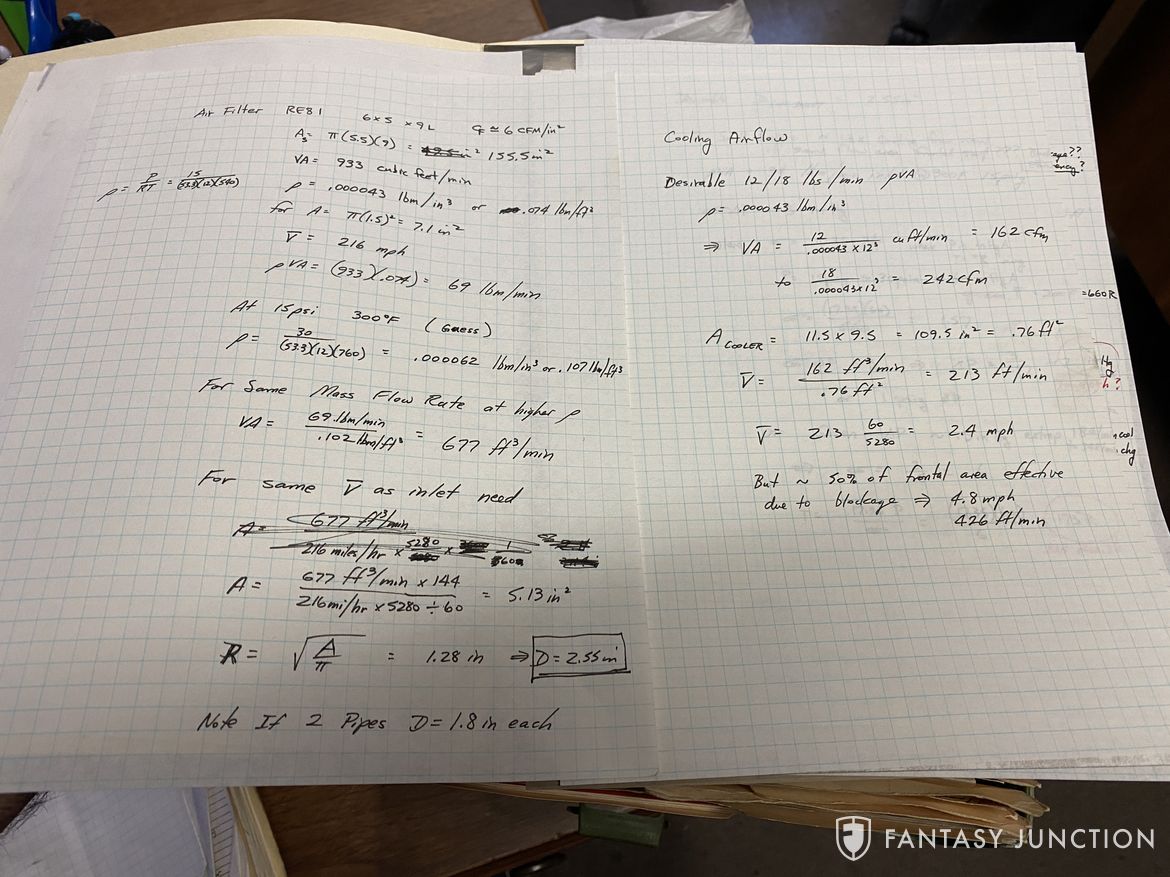 Air Filter RE81 6x5 x9L q ≅ 6 CFM/in²
As = π(5.5)(9) = 155.5 in²
VA = 933 cubic feet/min
ρ = P/RT = 15/(53.3)(12)(540)
ρ = .000043 lbm/in³ or .074 lbm/ft³
for A = π(1.5)² = 7.1 in²
V̄ = 216 mph
ρVA = (933)(.074) = 69 lbm/min
At 15psi 300°F (Guess)
ρ = 30/(53.3)(12)(760) = .000062 lbm/in³ or .107 lbm/ft³
For Same Mass Flow Rate at higher ρ
VA = 69.lbm/min / .102 lbm/ft³ = 677 ft³/min
For same V̄ as inlet need
A = 677 ft³/min
216 miles/hr x 5280 x 1/3600
A = 677 ft³/min x 144 / 216mi/hr x 5280 ÷ 60 = 5.13 in²
R = √A/π = 1.28 in ⇒ D = 2.55 in
Note If 2 Pipes D = 1.8 in each
Cooling Airflow
Desirable 12/18 lbs/min ρVA
ρ = .00043 lbm/in³
⇒ VA = 12/.000043 x 12³ cu ft/min = 162 cfm
to 18/.000043x12³ = 242 cfm
A COOLER = 11.5 x 9.5 = 109.5 in² = .76 ft²
V̄ = 162 ft³/min / .76 ft² = 213 ft/min
V̄ = 213 60/5280 = 2.4 mph
But ~ 50% of frontal area effective
due to blockage ⇒ 4.8 mph
426 ft/min
=660R
Hg
h?
cool
chg
FANTASY JUNCTION